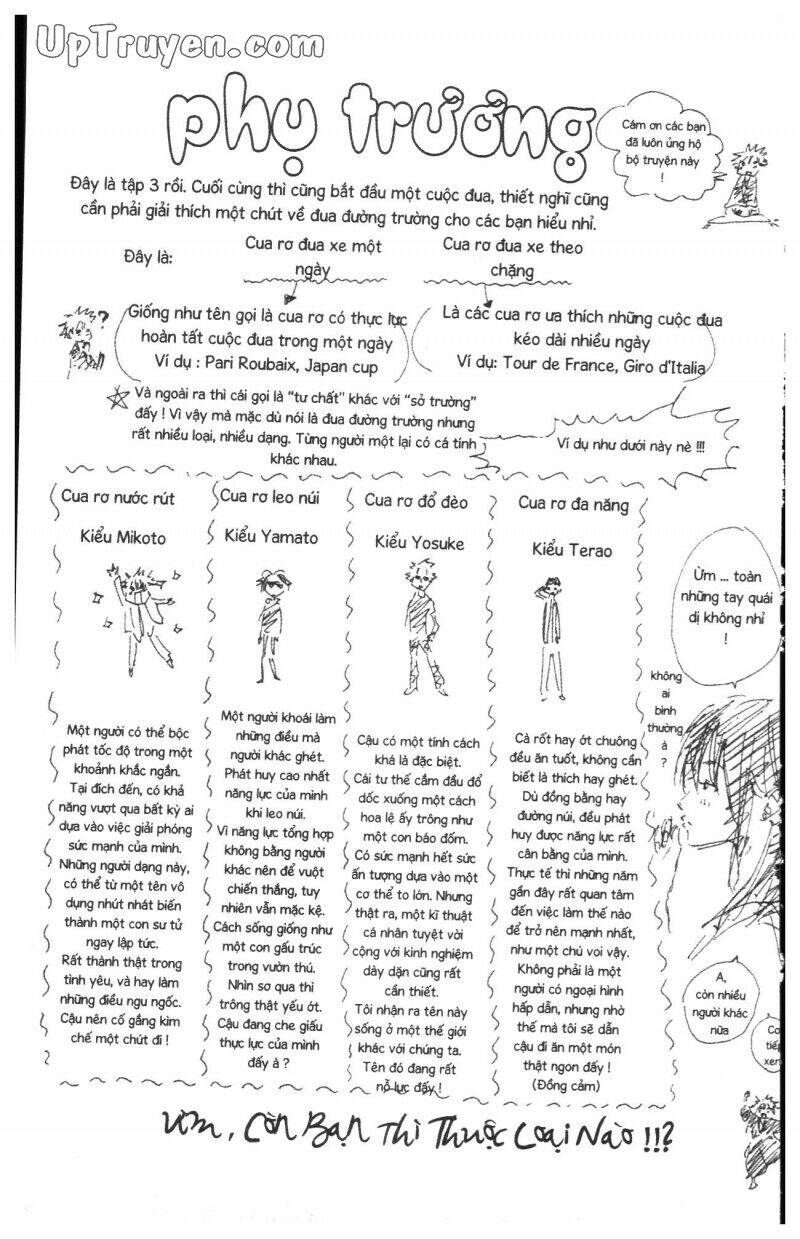 UpTruyen.com
phụ trương
Cám ơn các bạn
đã luôn ủng hộ
bộ truyện này
!
Đây là tập 3 rồi. Cuối cùng thì cũng bắt đầu một cuộc đua, thiết nghĩ cũng
cần phải giải thích một chút về đua đường trường cho các bạn hiểu nhỉ.
Đây là:
Cua rơ đua xe một
ngày
Cua rơ đua xe theo
chặng
Giống như tên gọi là cua rơ có thực lực
hoàn tất cuộc đua trong một ngày
Ví dụ : Pari Roubaix, Japan cup
Là các cua rơ ưa thích những cuộc đua
kéo dài nhiều ngày
Ví dụ: Tour de France, Giro d'Italia
Và ngoài ra thì cái gọi là “tư chất” khác với “sở trường”
đấy ! Vì vậy mà mặc dù nói là đua đường trường nhưng
rất nhiều loại, nhiều dạng. Từng người một lại có cá tính
khác nhau.
Ví dụ như dưới này nè !!!
Cua rơ nước rút
Kiểu Mikoto
Một người có thể bộc
phát tốc độ trong một
khoảnh khắc ngắn.
Tại đích đến, có khả
năng vượt qua bất kỳ ai
dựa vào việc giải phóng
sức mạnh của mình.
Những người dạng này,
có thể từ một tên vô
dụng nhút nhát biến
thành một con sư tử
ngay lập tức.
Rất thành thật trong
tình yêu, và hay làm
những điều ngu ngốc.
Cậu nên cố gắng kìm
chế một chút đi !
Cua rơ leo núi
Kiểu Yamato
Một người khoái làm
những điều mà
người khác ghét.
Phát huy cao nhất
năng lực của mình
khi leo núi.
Vì năng lực tổng hợp
không bằng người
khác nên để vuột
chiến thắng, tuy
nhiên vẫn mặc kệ.
Cách sống giống như
một con gấu trúc
trong vườn thú.
Nhìn sơ qua thì
trông thật yếu ớt.
Cậu đang che giấu
thực lực của mình
đấy à ?
Cua rơ đổ đèo
Kiểu Yosuke
Cậu có một tính cách
khá là đặc biệt.
Cái tư thế cắm đầu đổ
dốc xuống một cách
hoa lệ ấy trông như
một con báo đốm.
Có sức mạnh hết sức
ấn tượng dựa vào một
cơ thể to lớn. Nhưng
thật ra, một kĩ thuật
cá nhân tuyệt vời
cộng với kinh nghiệm
dày dặn cũng rất
cần thiết.
Tôi nhận ra tên này
sống ở một thế giới
khác với chúng ta.
Tên đó đang rất
nỗ lực đấy !
Cua rơ đa năng
Kiểu Terao
Cà rốt hay ớt chuông
đều ăn tuốt, không cần
biết là thích hay ghét.
Dù đồng bằng hay
đường núi, đều phát
huy được năng lực rất
cân bằng của mình.
Thực tế thì những năm
gần đây rất quan tâm
đến việc làm thế nào
để trở nên mạnh nhất,
như một chú voi vậy.
Không phải là một
người có ngoại hình
hấp dẫn, nhưng nhờ
thế mà tôi sẽ dẫn
cậu đi ăn một món
thật ngon đấy !
(Đồng cảm)
Ừm ... toàn
những tay quái
dị không nhỉ
!
không
ai
bình
thường
à
?
A,
còn nhiều
người khác
nữa
tiếp
xem
Ừm, Còn Bạn Thì Thuộc Loại Nào !!!?